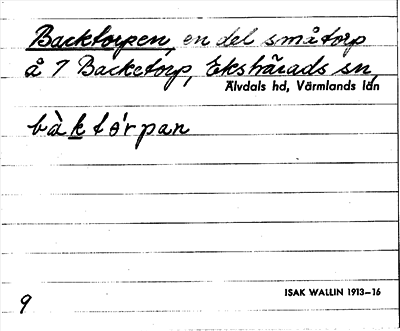 Backtorpen, en del småtorp
å 7 Backetorp, Ekshärads sn,
Älvdals hd, Värmlands län
bàktórpan
ISAK WALLIN 1913–16
9